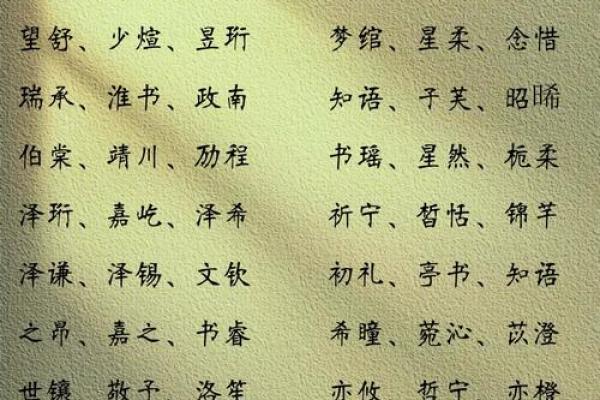 望舒、少煊、昱珩 梦绾、星柔、念惜
瑞承、淮书、政南 知语、子芙、昭晞
伯棠、靖川、励程 书瑶、星然、栀柔
泽珩、嘉屹、泽希 祈宁、皙恬、锦芊
泽谦、泽锡、文钦 初礼、亭书、知语
之昂、嘉之、书睿 希瞳、菀沁、苡澄
世镶、敬予、洛笙 亦攸、哲宁、亦橙